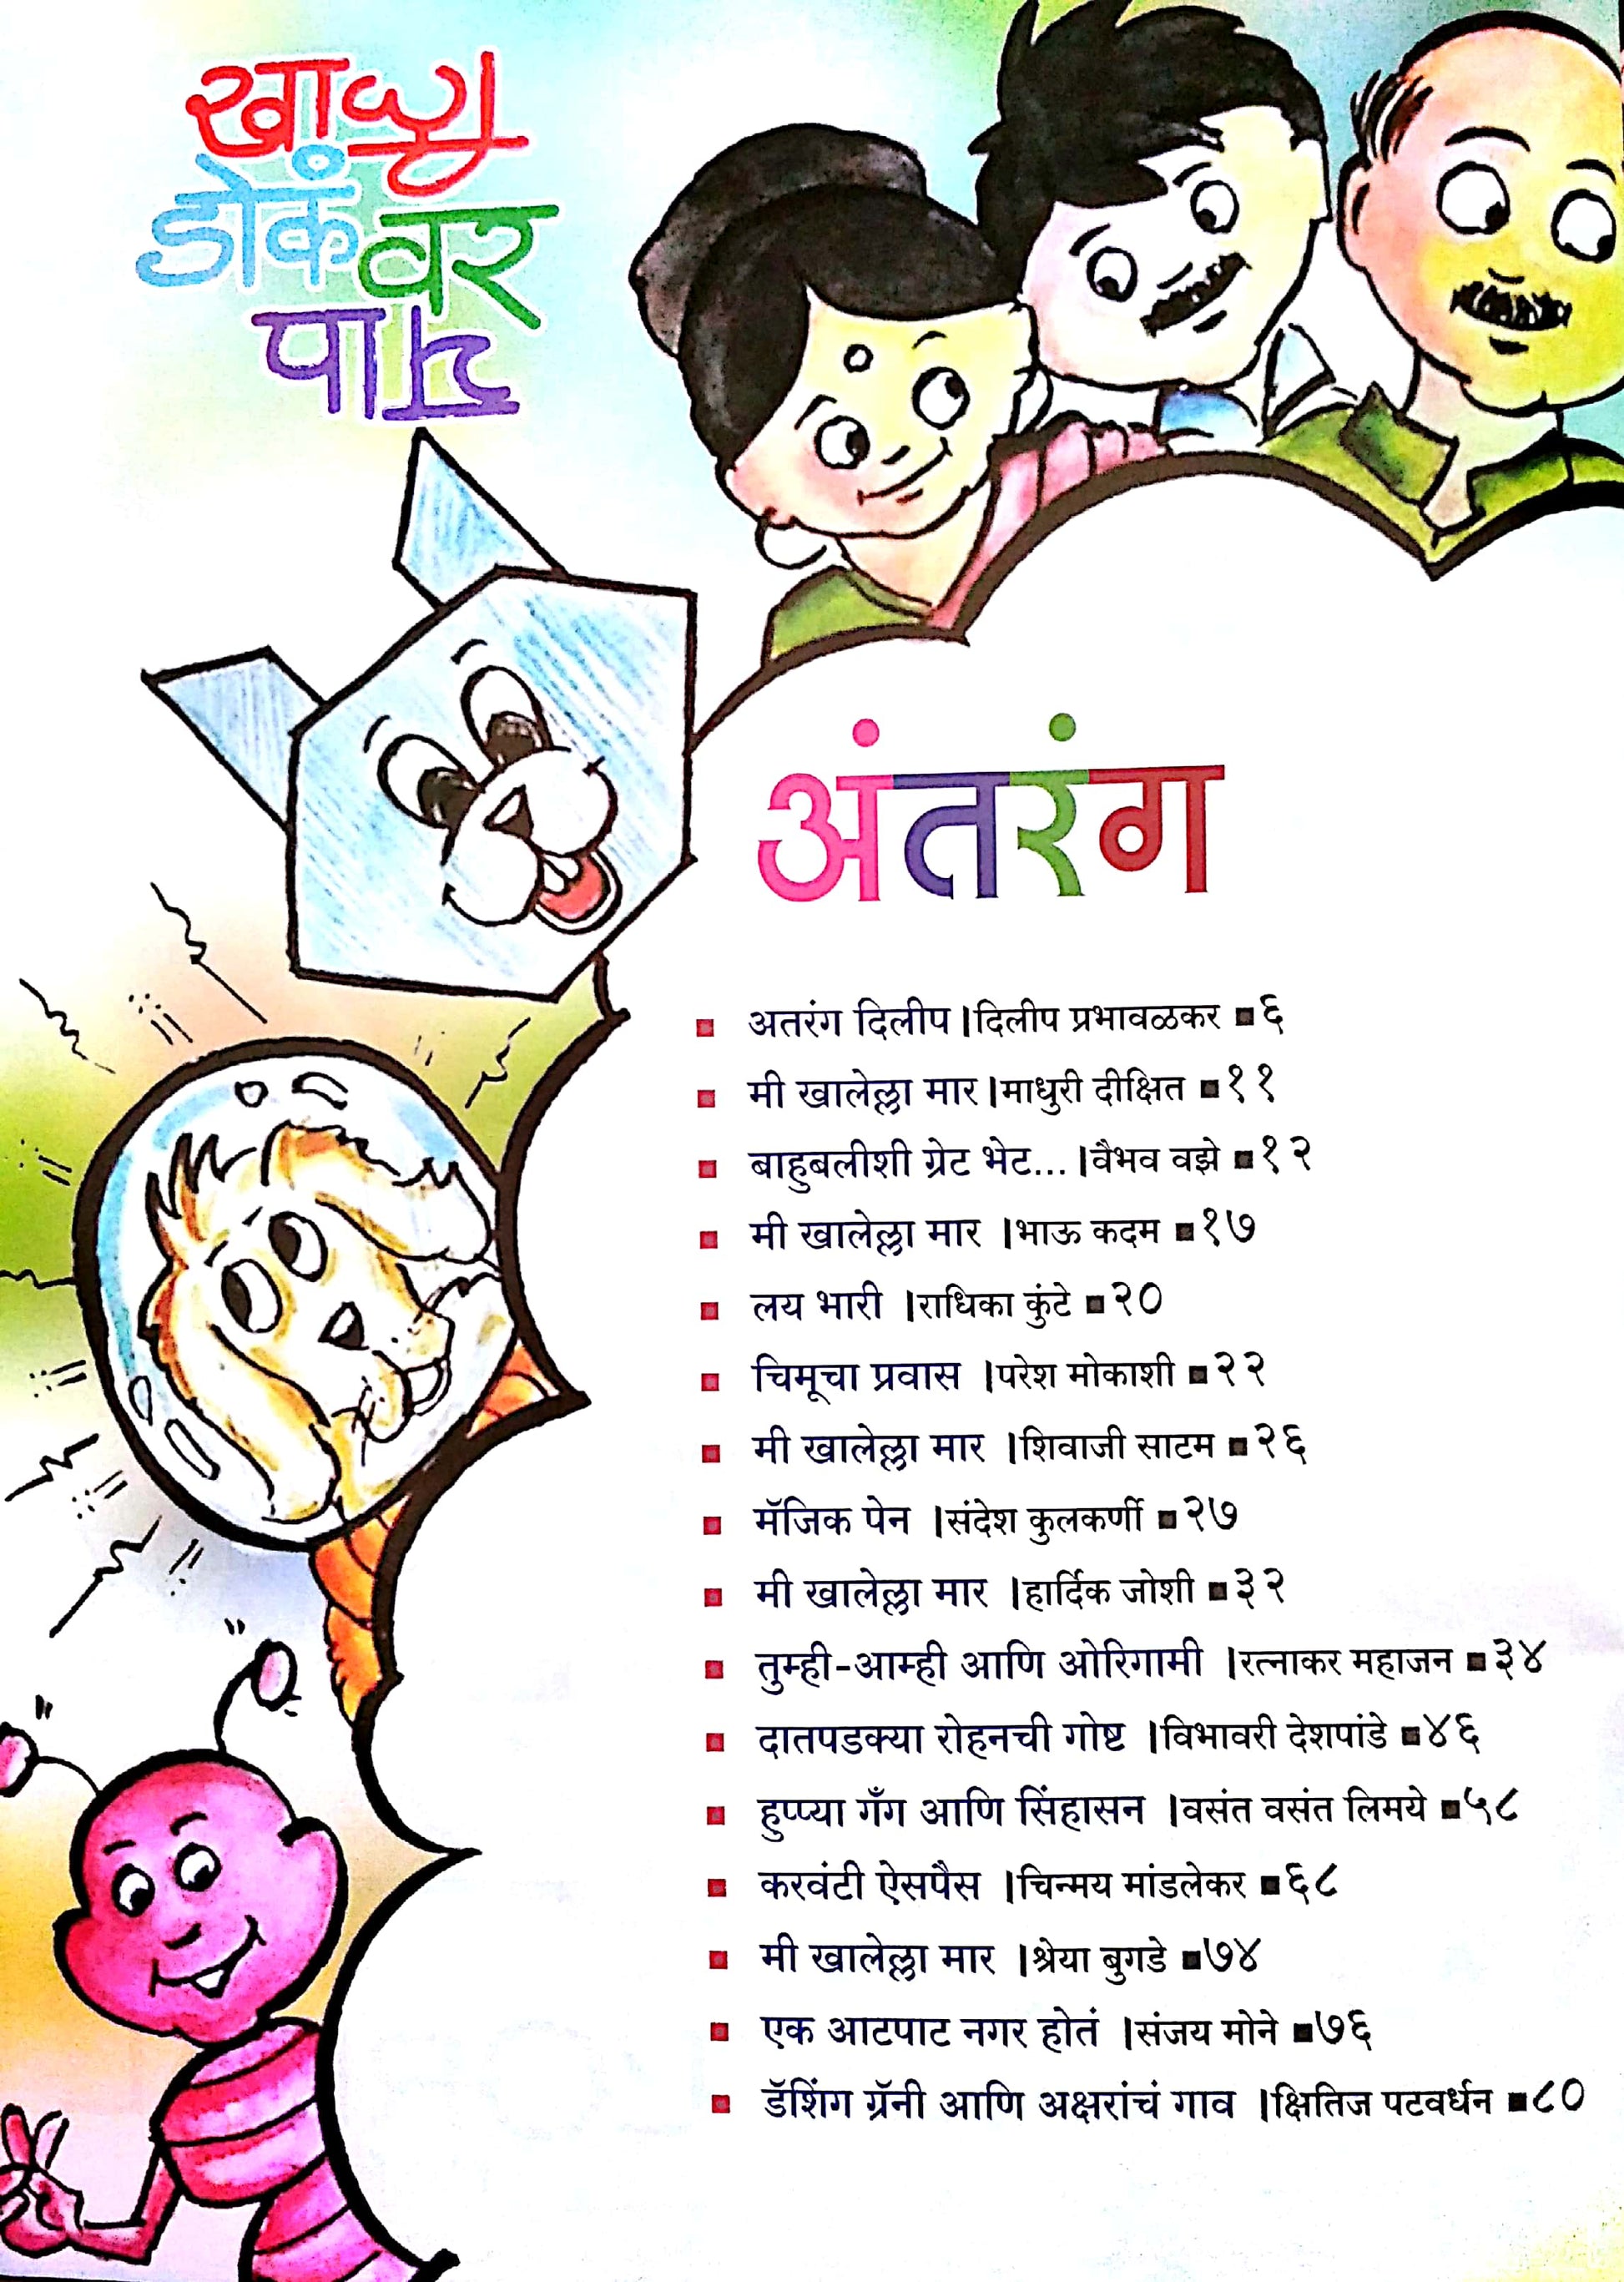 खाली
डोकं वर
पाय
अंतरंग
▪ अतरंग दिलीप । दिलीप प्रभावळकर ▪ ६
▪ मी खालेल्ला मार । माधुरी दीक्षित ▪ ११
▪ बाहुबलीशी ग्रेट भेट... । वैभव वझे ▪ १२
▪ मी खालेल्ला मार । भाऊ कदम ▪ १७
▪ लय भारी । राधिका कुंटे ▪ २०
▪ चिमूचा प्रवास । परेश मोकाशी ▪ २२
▪ मी खालेल्ला मार । शिवाजी साटम ▪ २६
▪ मॅजिक पेन । संदेश कुलकर्णी ▪ २७
▪ मी खालेल्ला मार । हार्दिक जोशी ▪ ३२
▪ तुम्ही-आम्ही आणि ओरिगामी । रत्नाकर महाजन ▪ ३४
▪ दातपडक्या रोहनची गोष्ट । विभावरी देशपांडे ▪ ४६
▪ हुप्प्या गँग आणि सिंहासन । वसंत वसंत लिमये ▪ ५८
▪ करवंटी ऐसपैस । चिन्मय मांडलेकर ▪ ६८
▪ मी खालेल्ला मार । श्रेया बुगडे ▪ ७४
▪ एक आटपाट नगर होतं । संजय मोने ▪ ७६
▪ डॅशिंग ग्रॅनी आणि अक्षरांचं गाव । क्षितिज पटवर्धन ▪ ८०